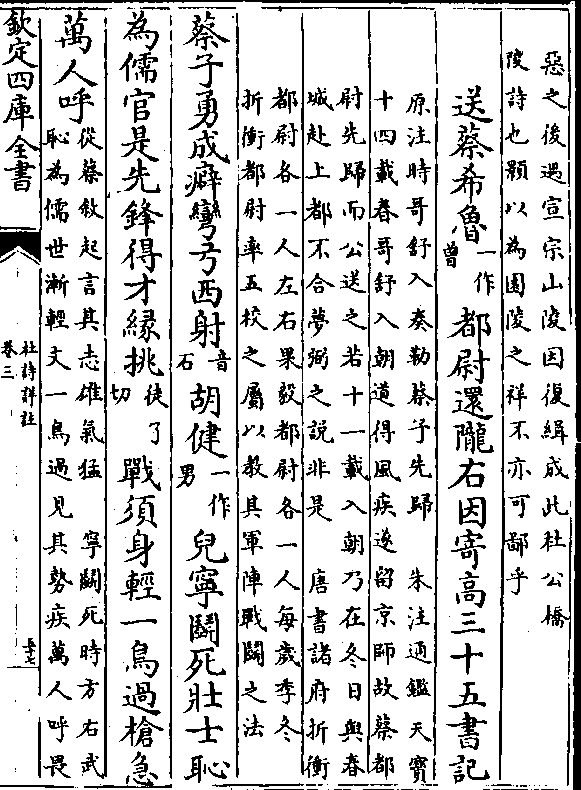 惡之後遇宣宗山陵因復緝成此杜公橋
陵詩也顥以為園陵之祥不亦可鄙乎
送蔡希魯一作曽都尉還隴右因寄高三十五書記
原注時哥舒入奏勒蔡子先歸 朱注通鑑天寳
十四載春哥舒入朝道得風疾遂留京師故蔡都
尉先歸而公送之若十一載入朝乃在冬日與春
城赴上都不合夢弼之説非是 唐書諸府折衝
都尉各一人左右果毅都尉各一人每歲季冬
折衝都尉率五校之屬以教其軍陣戰鬭之法
蔡子勇成癖彎弓西射音石胡健一作男兒寧鬭死壯士恥
為儒官是先鋒得才緣挑徒了切戰須身輕一鳥過槍急
萬人呼從蔡敘起言其志雄氣猛 寧鬭死時方右武
恥為儒世漸輕文一鳥過見其勢疾萬人呼畏
欽定四庫全書
杜詩詳註
卷三
五十七